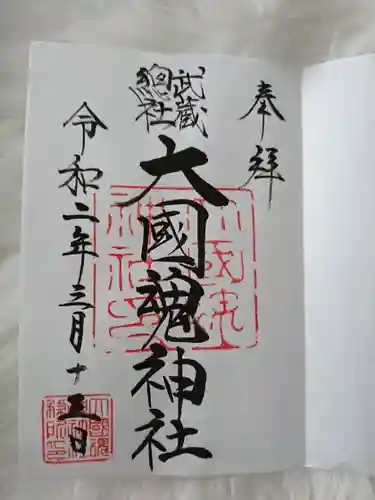 奉拝
武蔵
總社
大國魂神社
令和二年三月十三日